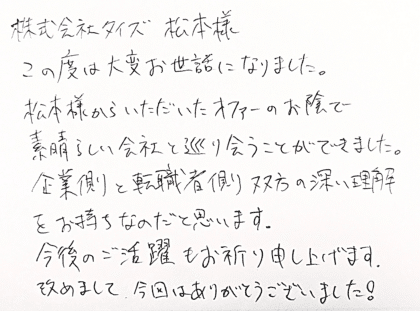 株式会社タイズ 松本様
この度は大変お世話になりました。
松本様からいただいたオファーのお陰で
素晴らしい会社と巡り会うことができました。
企業側と転職者側 双方の深い理解
をお持ちなのだと思います.
今後のご活躍もお祈り申し上げます.
改めまして、今回はありがとうございました!